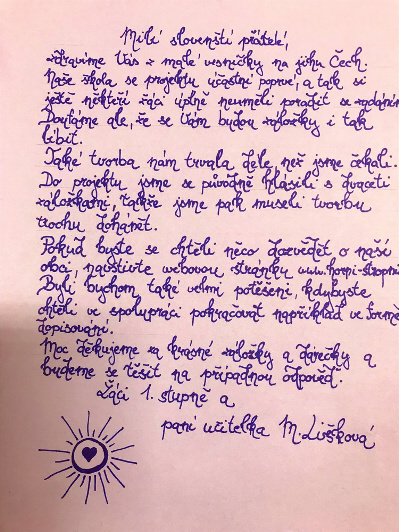 Milí slovenští přátelé,
zdravíme Vás z malé vesničky na jihu Čech.
Naše škola se projektu účastní poprvé, a tak si
ještě někteří žáci úplně neuměli poradit se zadáním
Doufáme ale, že se Vám budou záložky i tak
líbit.
Také tvorba nám trvala déle než jsme čekali.
Do projektu jsme se původně hlásili s dvaceti
záložkami, takže jsme pak museli tvorbu
trochu dohánět.
Pokud byste se chtěli něco dozvědět o naší
obci, navštivte webovou stránku www.horni-stropni
Byli bychom také velmi potěšeni, kdybyste
chtěli ve spolupráci pokračovat například ve formě
dopisování.
Moc děkujeme za krásné záložky a dárečky a
budeme se těšit na případnou odpověď.
Žáci 1. stupně a
paní učitelka M. Lišková